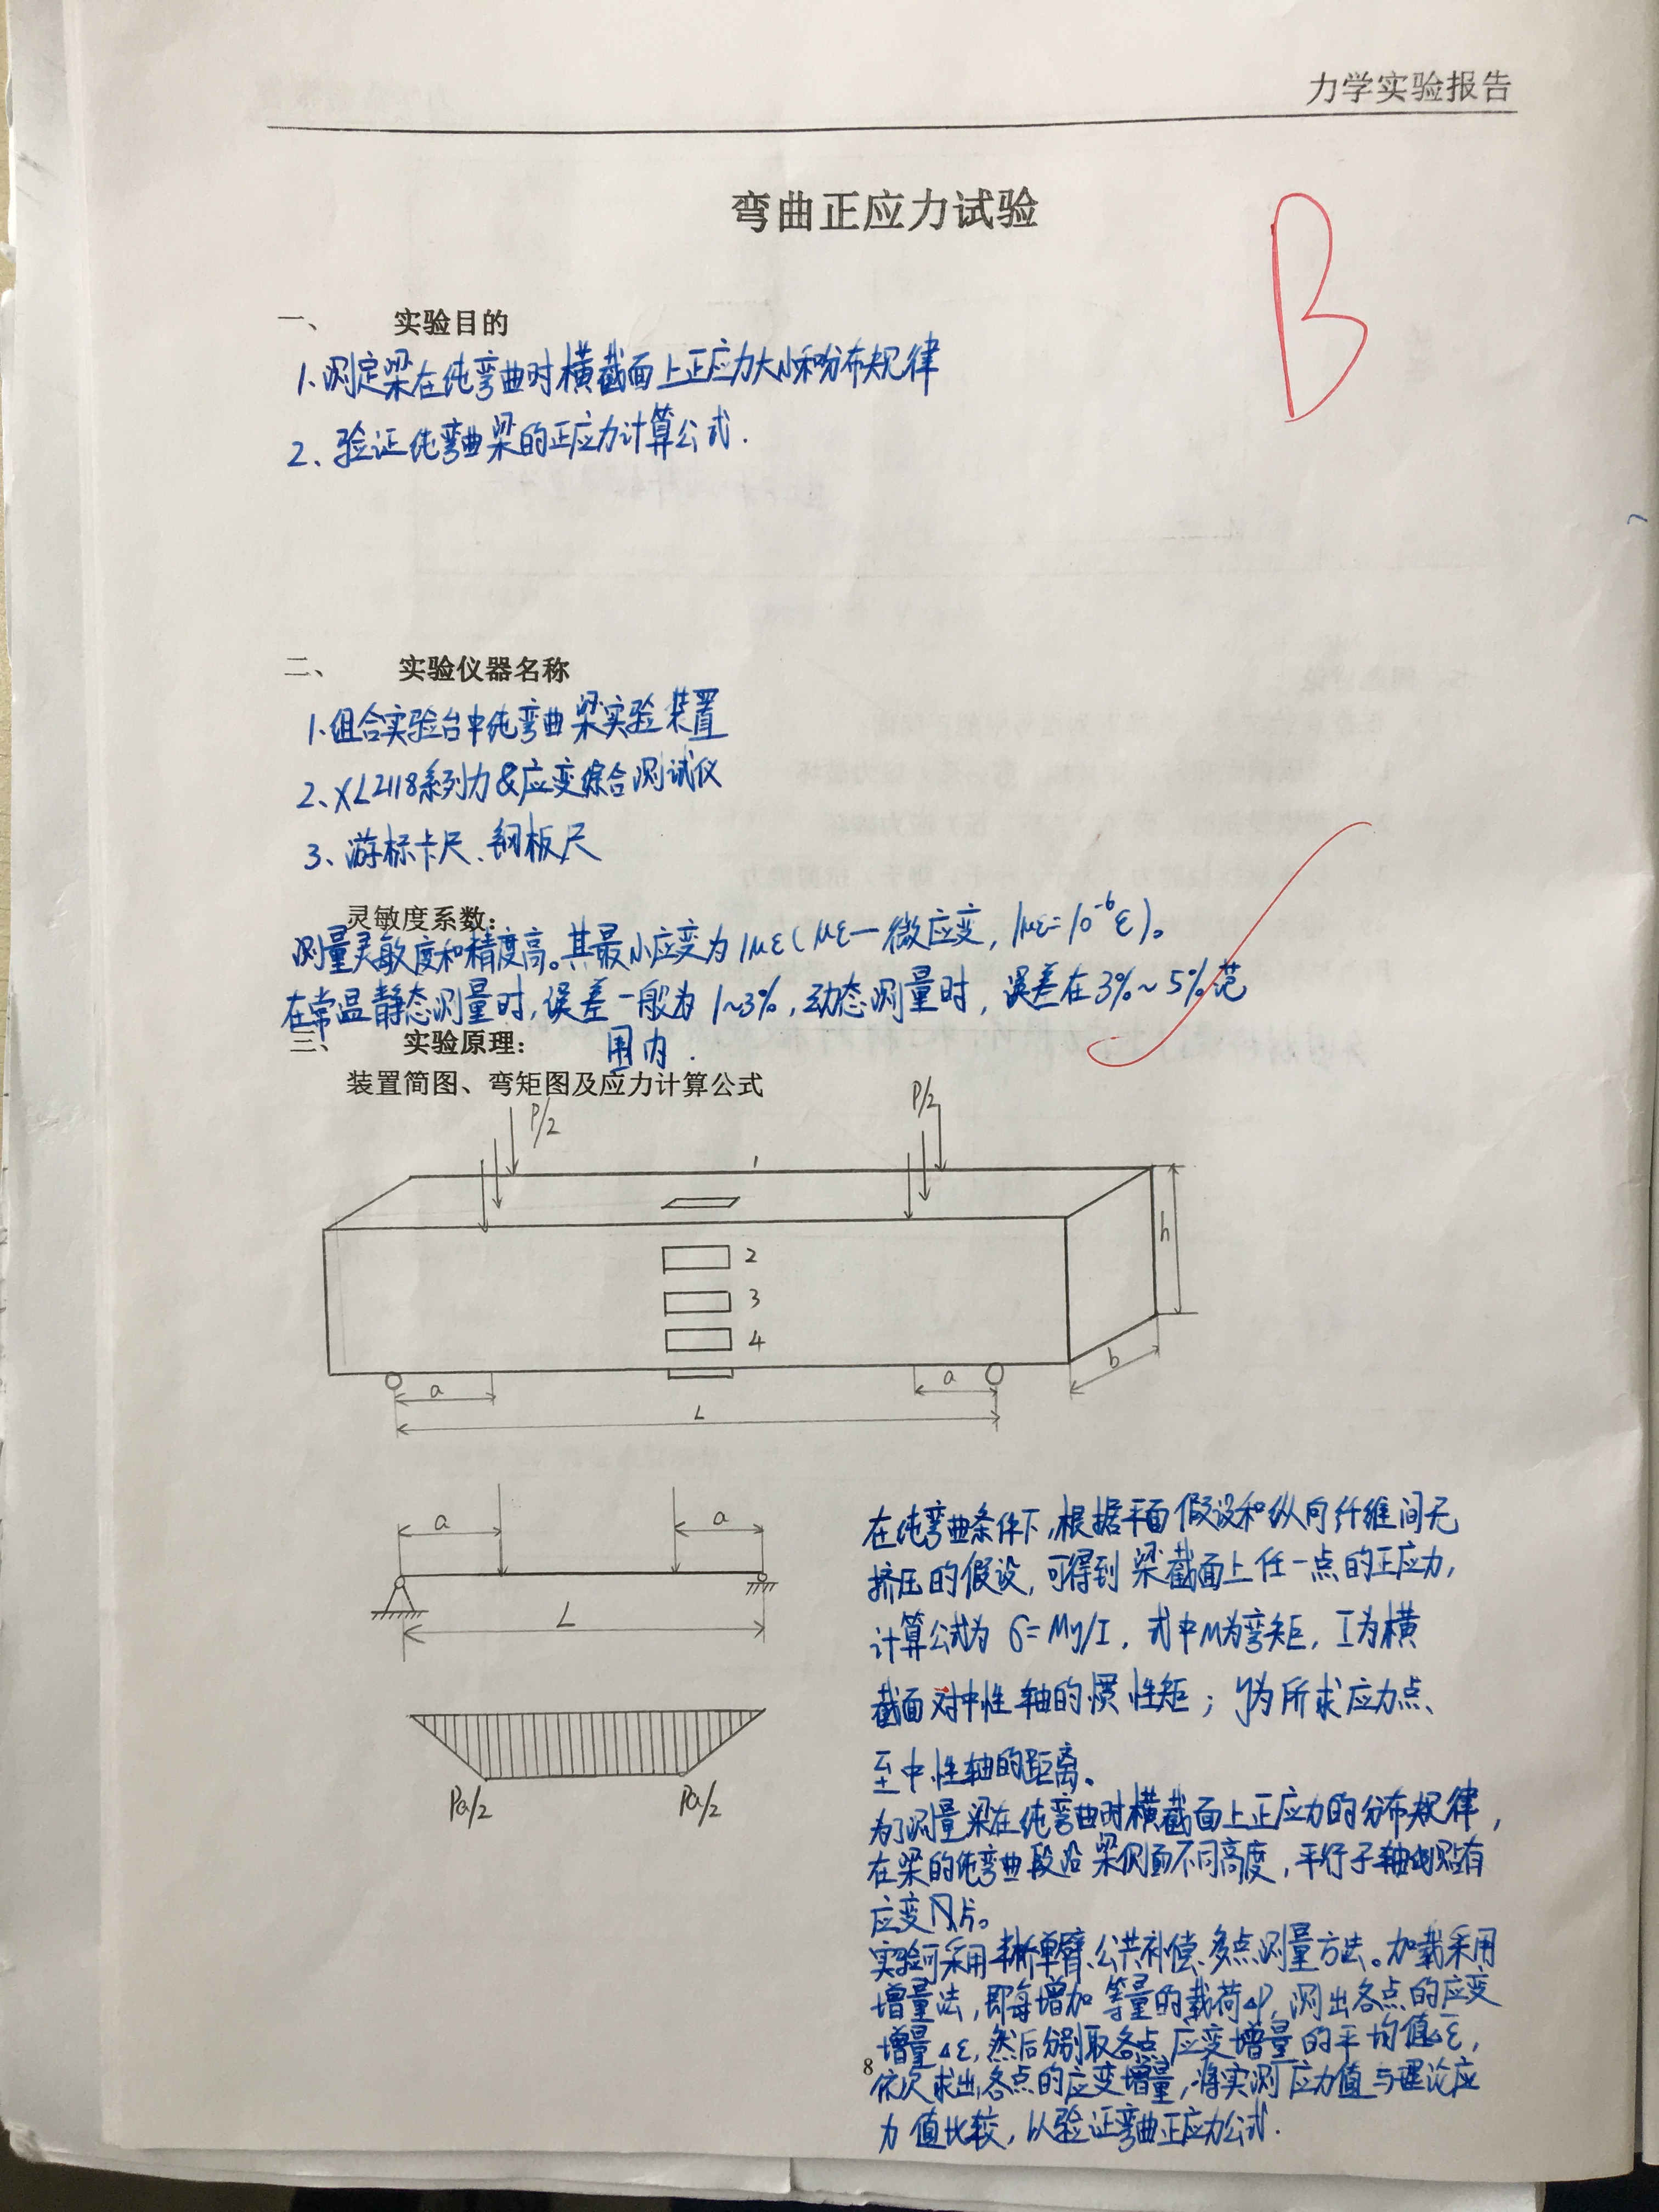 力学实验报告
弯曲正应力试验
B
一、 实验目的
1、测定梁在纯弯曲时横截面上正应力大小和分布规律
2、验证纯弯曲梁的正应力计算公式.
二、 实验仪器名称
1、组合实验台中纯弯曲梁实验装置
2、XL2118系列力&应变综合测试仪
3、游标卡尺、钢板尺
灵敏度系数：
测量灵敏度和精度高。其最小应变为1με(με一微应变, 1με=10⁻⁶ε)。
在常温静态测量时,误差一般为1~3%,动态测量时,误差在3%~5%范
围内.
三、 实验原理：
装置简图、弯矩图及应力计算公式
P/2 P/2
1
2
3
4
h
b
a a
L
a a
L
Pa/2 Pa/2
在纯弯曲条件下,根据平面假设和纵向纤维间无
挤压的假设,可得到梁截面上任一点的正应力,
计算公式为 σ=My/I, 式中M为弯矩, I为横
截面对中性轴的惯性矩; y为所求应力点、
至中性轴的距离。
为了测量梁在纯弯曲时横截面上正应力的分布规律,
在梁的纯弯曲段沿梁侧面不同高度,平行于轴线贴有
应变片。
实验可采用半桥单臂、公共补偿、多点测量方法。加载采用
增量法,即每增加等量的载荷△P,测出各点的应变
增量△ε,然后分别取各点应变增量的平均值△ε̄,
依次求出各点的应变增量,将实测应力值与理论应
力值比较,以验证弯曲正应力公式.
8